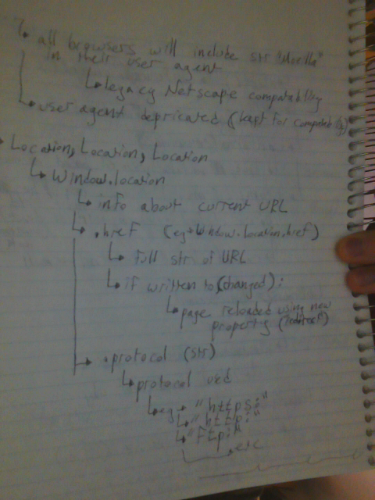 ↳ all browsers will include str "Mozilla"
in their user agent
↳ legacy Netscape compatability
↳ user agent depricated (kept for compatability)
Location, Location, Location
↳ Window.location
↳ info about current URL
↳ .href (eg → Window.location.href)
↳ full str of URL
↳ if written to (changed):
↳ page reloaded using new
property (redirect)
↳ .protocol (str)
↳ protocol used
↳ eg → "https:"
↳ "http:"
↳ "ftp:"
etc